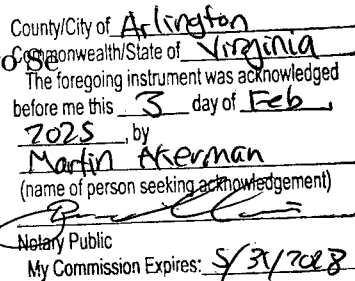 County/City of Arlington
Commonwealth/State of Virginia
o Se
The foregoing instrument was acknowledged
before me this 3 day of Feb,
2025, by
Martin Akerman
(name of person seeking acknowledgement)
Notary Public
My Commission Expires: 5/31/2028